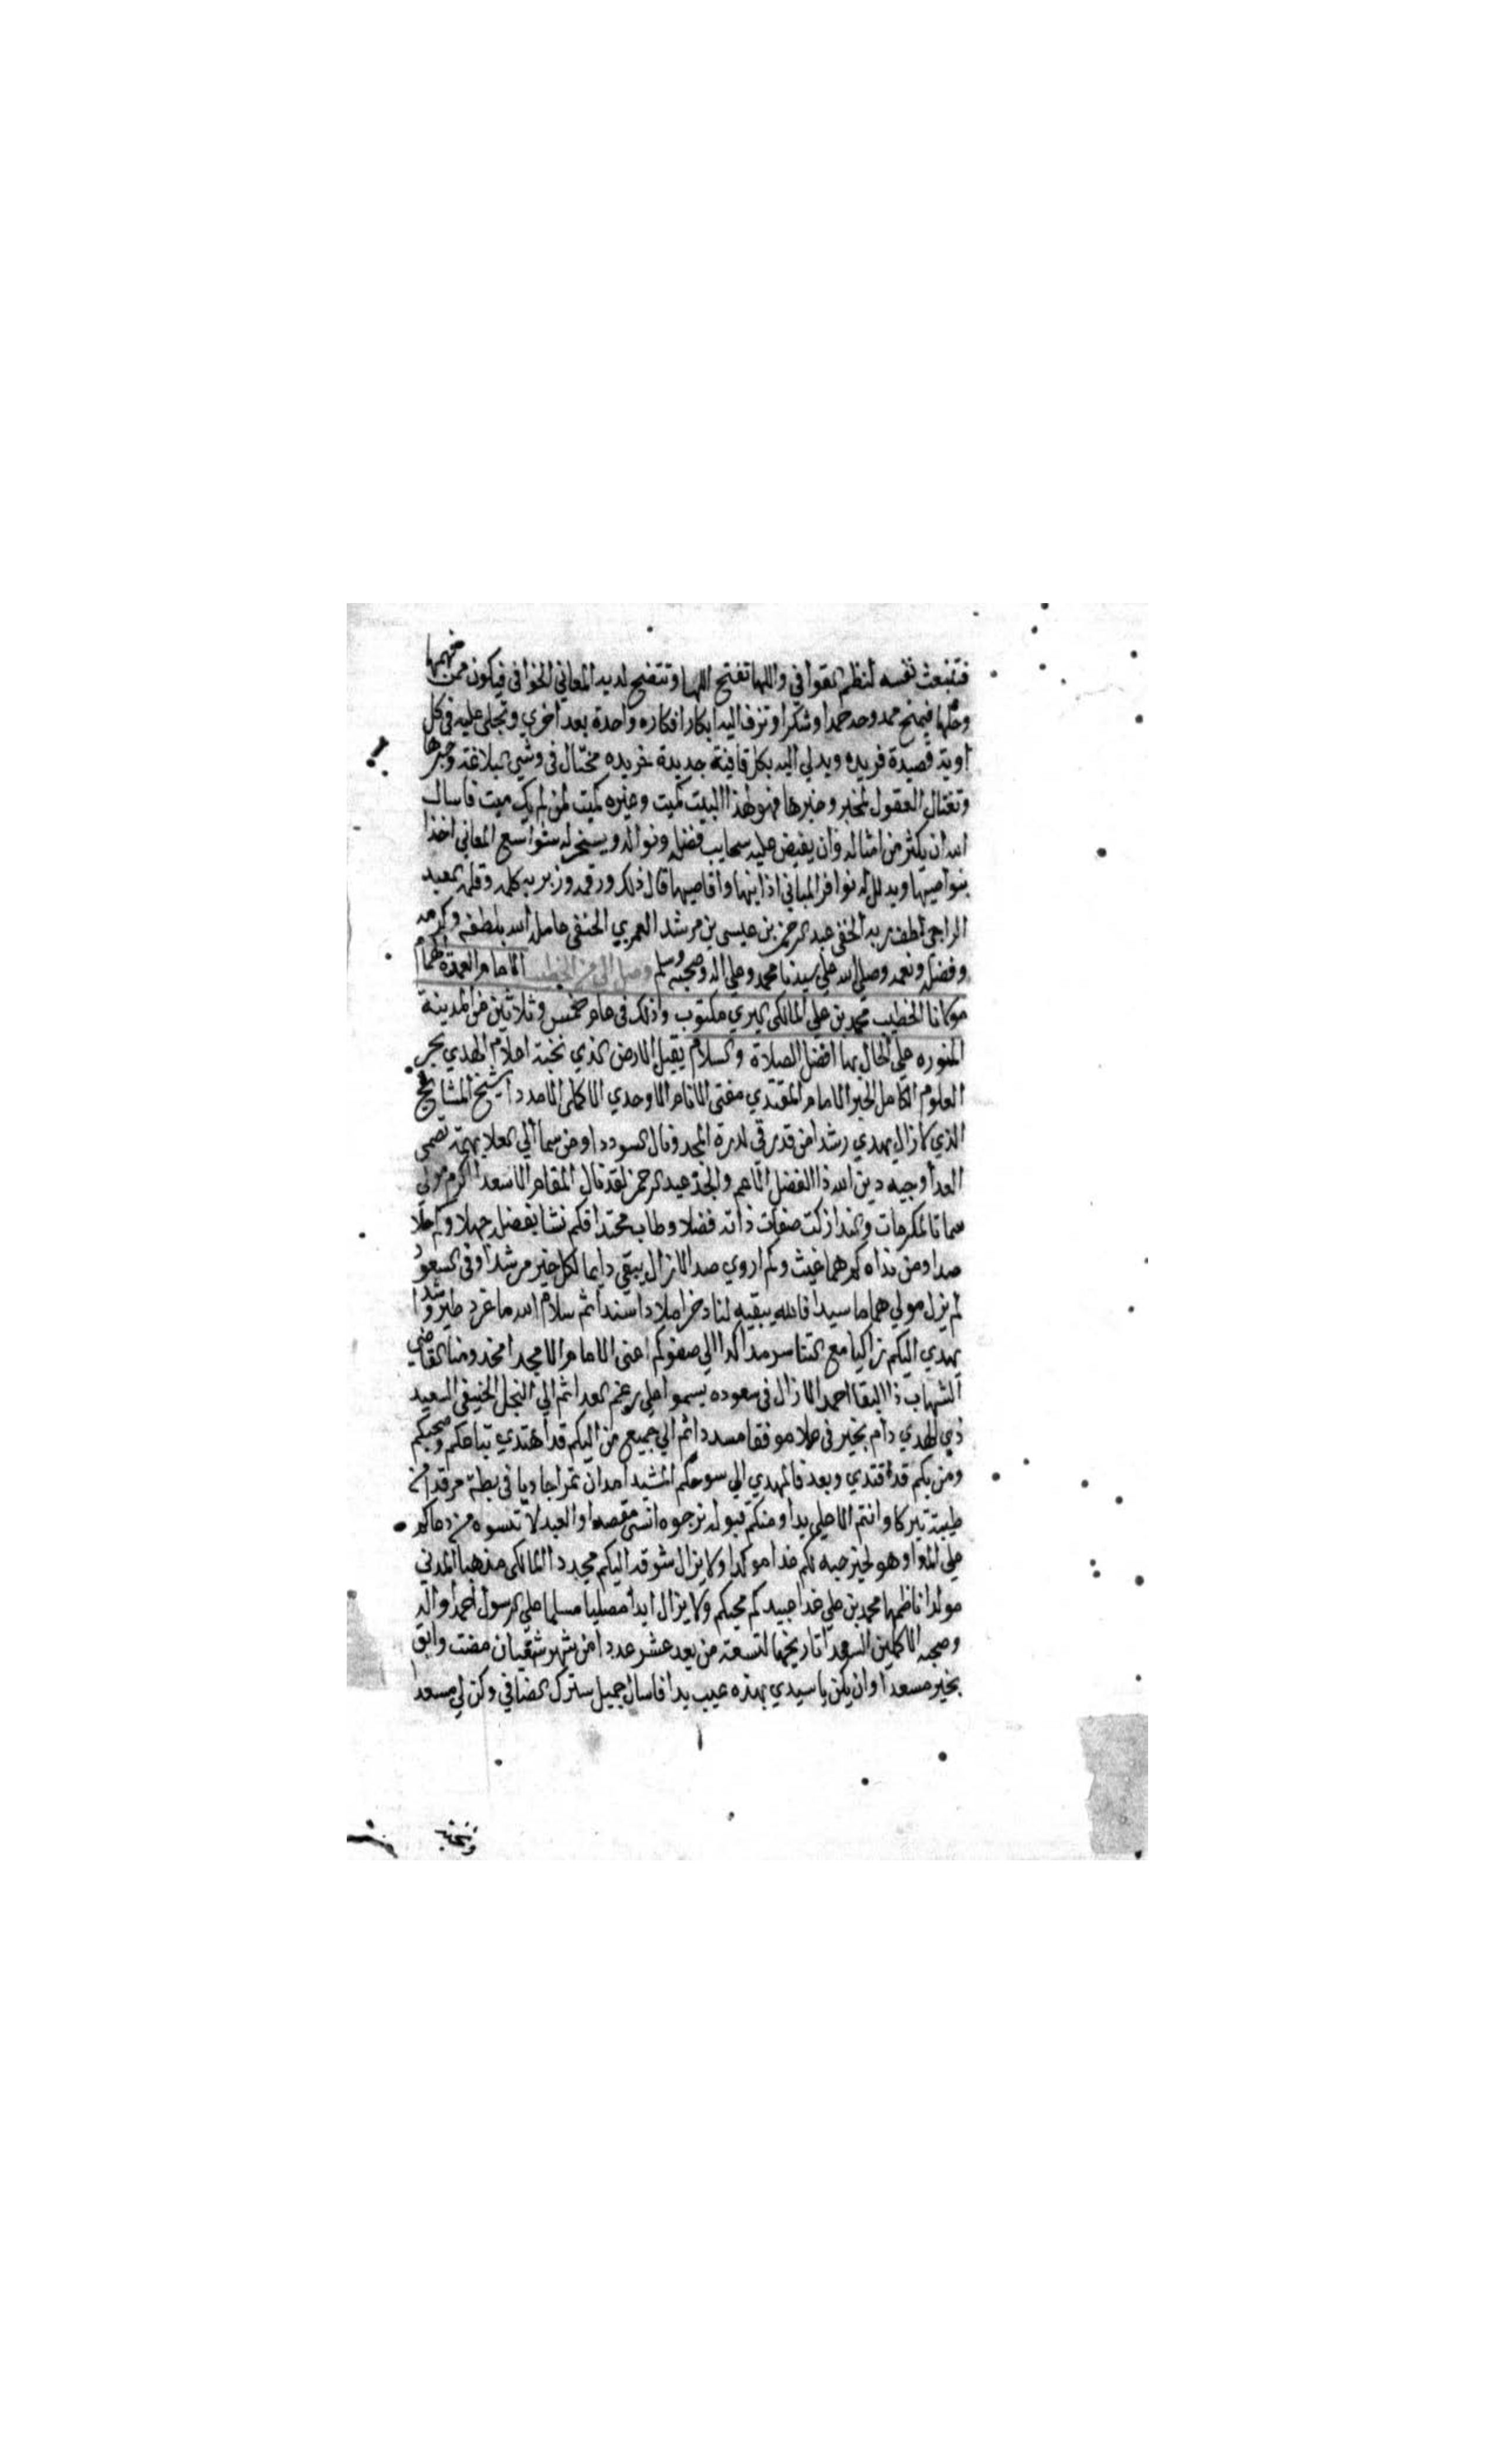 فتنبعث نفسه لنظم القوافي واللها تفتح اللها وتتضح لديه المعاني الخوافي فيكون ممن فهمها
وعلمها فيمنح ممدوحه حمدا وشكرا وتزف اليه ابكار افكاره واحدة بعد اخري وتجلي عليه في كل
اوية قصيدة فريده ويدلي اليه بكل قافية جديدة خريده تختال في وشي البلاغة وحبرها
وتغتال العقول بمخبر وخبرها فهو لهذا البيت كميت وغيره كميت لمن لم يك ميت فاسال
الله ان يكثر من امثاله وان يفيض عليه سحايب فضله ونواله ويسخر له شواسع المعاني اخذا
بنواصيها ويدلل له نوافر المباني اذ اينها واقاصيها قال ذلك ورقمه وزبر به كلمه وقلمه العبد
الراجي لطف ربه الخفي عبد الرحمن بن عيسى بن مرشد العمري الحنفي عامله الله بلطفه وكرمه
وفضله ونعمه وصلى الله على سيدنا محمد وعلى اله وصحبه وسلم وصل الي من الخطيب الامام العمدة الهمام
مولانا الخطيب محمد بن علي المالكي مكتوب وذلك في عام خمس وثلاثين من المدينة
المنوره على الحال بها افضل الصلاة والسلام يقبل الارض الذي نخبة اعلام الهدي بحر
العلوم الكامل الحبر الامام المقتدي مفتي الانام الاوحدي الاكملي الامددا شيخ المشايخ
الذي لا زال يهدي رشدا من قد رقي لذرة المجد ونال السوددا ومن سما الي العلا بهمة تصمي
العدا وجيه دين الله ذا الفضل الاعم والجدّ عبد الرحمن لقد نال المقام الاسعدا اكرم مولي
سما تالمكرمات والندا زكت صفات ذاته فضلا وطاب محتدا فكم نشا بفضله جهلا وكم اجلا
صدا ومن نداه كم هما غيث وكم اروي صدا لا زال يبقي دايما لكل خير مرشدا وفي السعود
لم يزل مولي هماما سيدا فالله يبقيه لنا دخرا ملادا سندا ثم سلام الله ما غرد طير وشدا
يهدي اليكم زاكيا مع الثنا سرمدا كدا الي صفوكم اعني الامام الامجدا مخدومنا القاضي
الشهاب ذا البقا احمد لا زال في سعوده يسموا على رغم العدا ثم الي النجل الحنيفي السعيد
ذي الهدي دام بخير في علا موفقا مسددا ثم الي جميع من اليكم قد اهتدي تباعكم وصحبكم
ومن بكم قد اقتدي وبعد فالمهدي الي سوحكم المشيدا مدان تمرا جاديا في بطة مرقدا من
طيبة تبركا وانتم الاعلى يدا ومنكم قبوله نرجوه انسى مقصدا والعبد لا تنسوه من دعاكم
على المدا وهو لخير حبه لكم غدا موكدا ولا يزال شوقه اليكم مجددا المالكي مذهبا المدني
مولدا ناظمها محمد بن علي غدا عبيدكم محبكم ولا يزال ابدا مصليا مسلما على الرسول احمد واله
وصحبه الاكملين السعدا تاريخها لتسعة من بعد عشر عددا من شهر شعبان مضت وابق
بخير مسعدا وان يكن يا سيدي بهذه عيب بدا فاسال جميل سترك الضافي وكن لي مسعدا